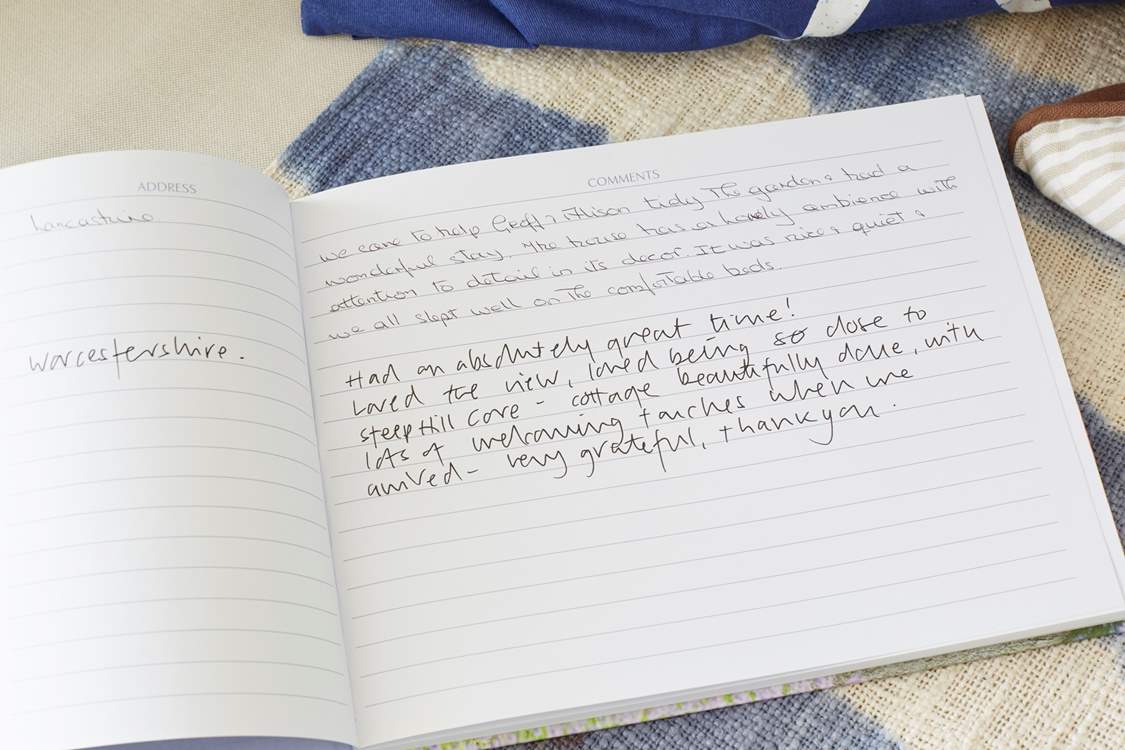 ADDRESS
Lancashire
Worcestershire.
COMMENTS
we came to help Geoff & Alison tidy the garden & had a
wonderful stay. The house has a lovely ambience with
attention to detail in its decor. It was nice & quiet &
we all slept well on the comfortable beds.
Had an absolutely great time!
Loved the view, loved being so close to
Steephill Cove - cottage beautifully done, with
lots of welcoming touches when we
arrived - very grateful, thank you.